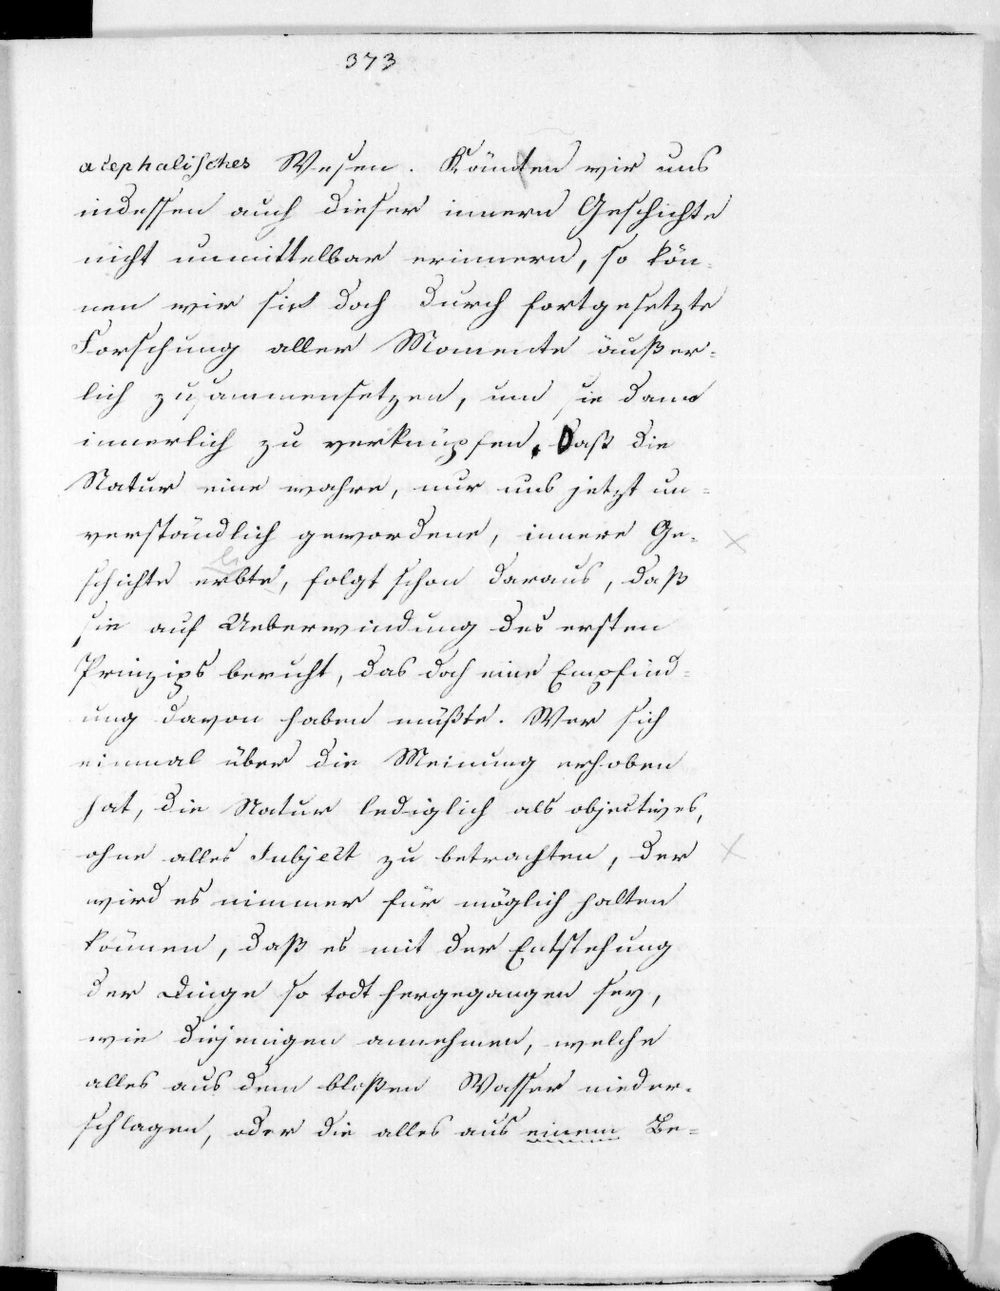 373
acephalisches Wesen. Könnten wir uns
indessen auch dieser innern Geschichte
nicht unmittelbar erinnern, so kön-
nen wir sie doch durch fortgesetzte
Forschung aller Momente äußer-
lich zusammensetzen, um sie dann
innerlich zu verknüpfen. Daß die
Natur eine wahre, nur uns jetzt un-
verständlich gewordene, innere Ge-
schichte erlebte, folgt schon daraus, daß
sie auf Ueberwindung des ersten
Prinzips beruht, das doch eine Empfind-
ung davon haben müßte. Wer sich
einmal über die Meinung erhoben
hat, die Natur lediglich als objectives,
ohne alles Subject zu betrachten, der
wird es nimmer für möglich halten
können, daß es mit der Entstehung
der Dinge so todt hergegangen sey,
wie diejenigen annehmen, welche
alles aus dem bloßen Wasser nieder-
schlagen, oder die alles aus einem Be-